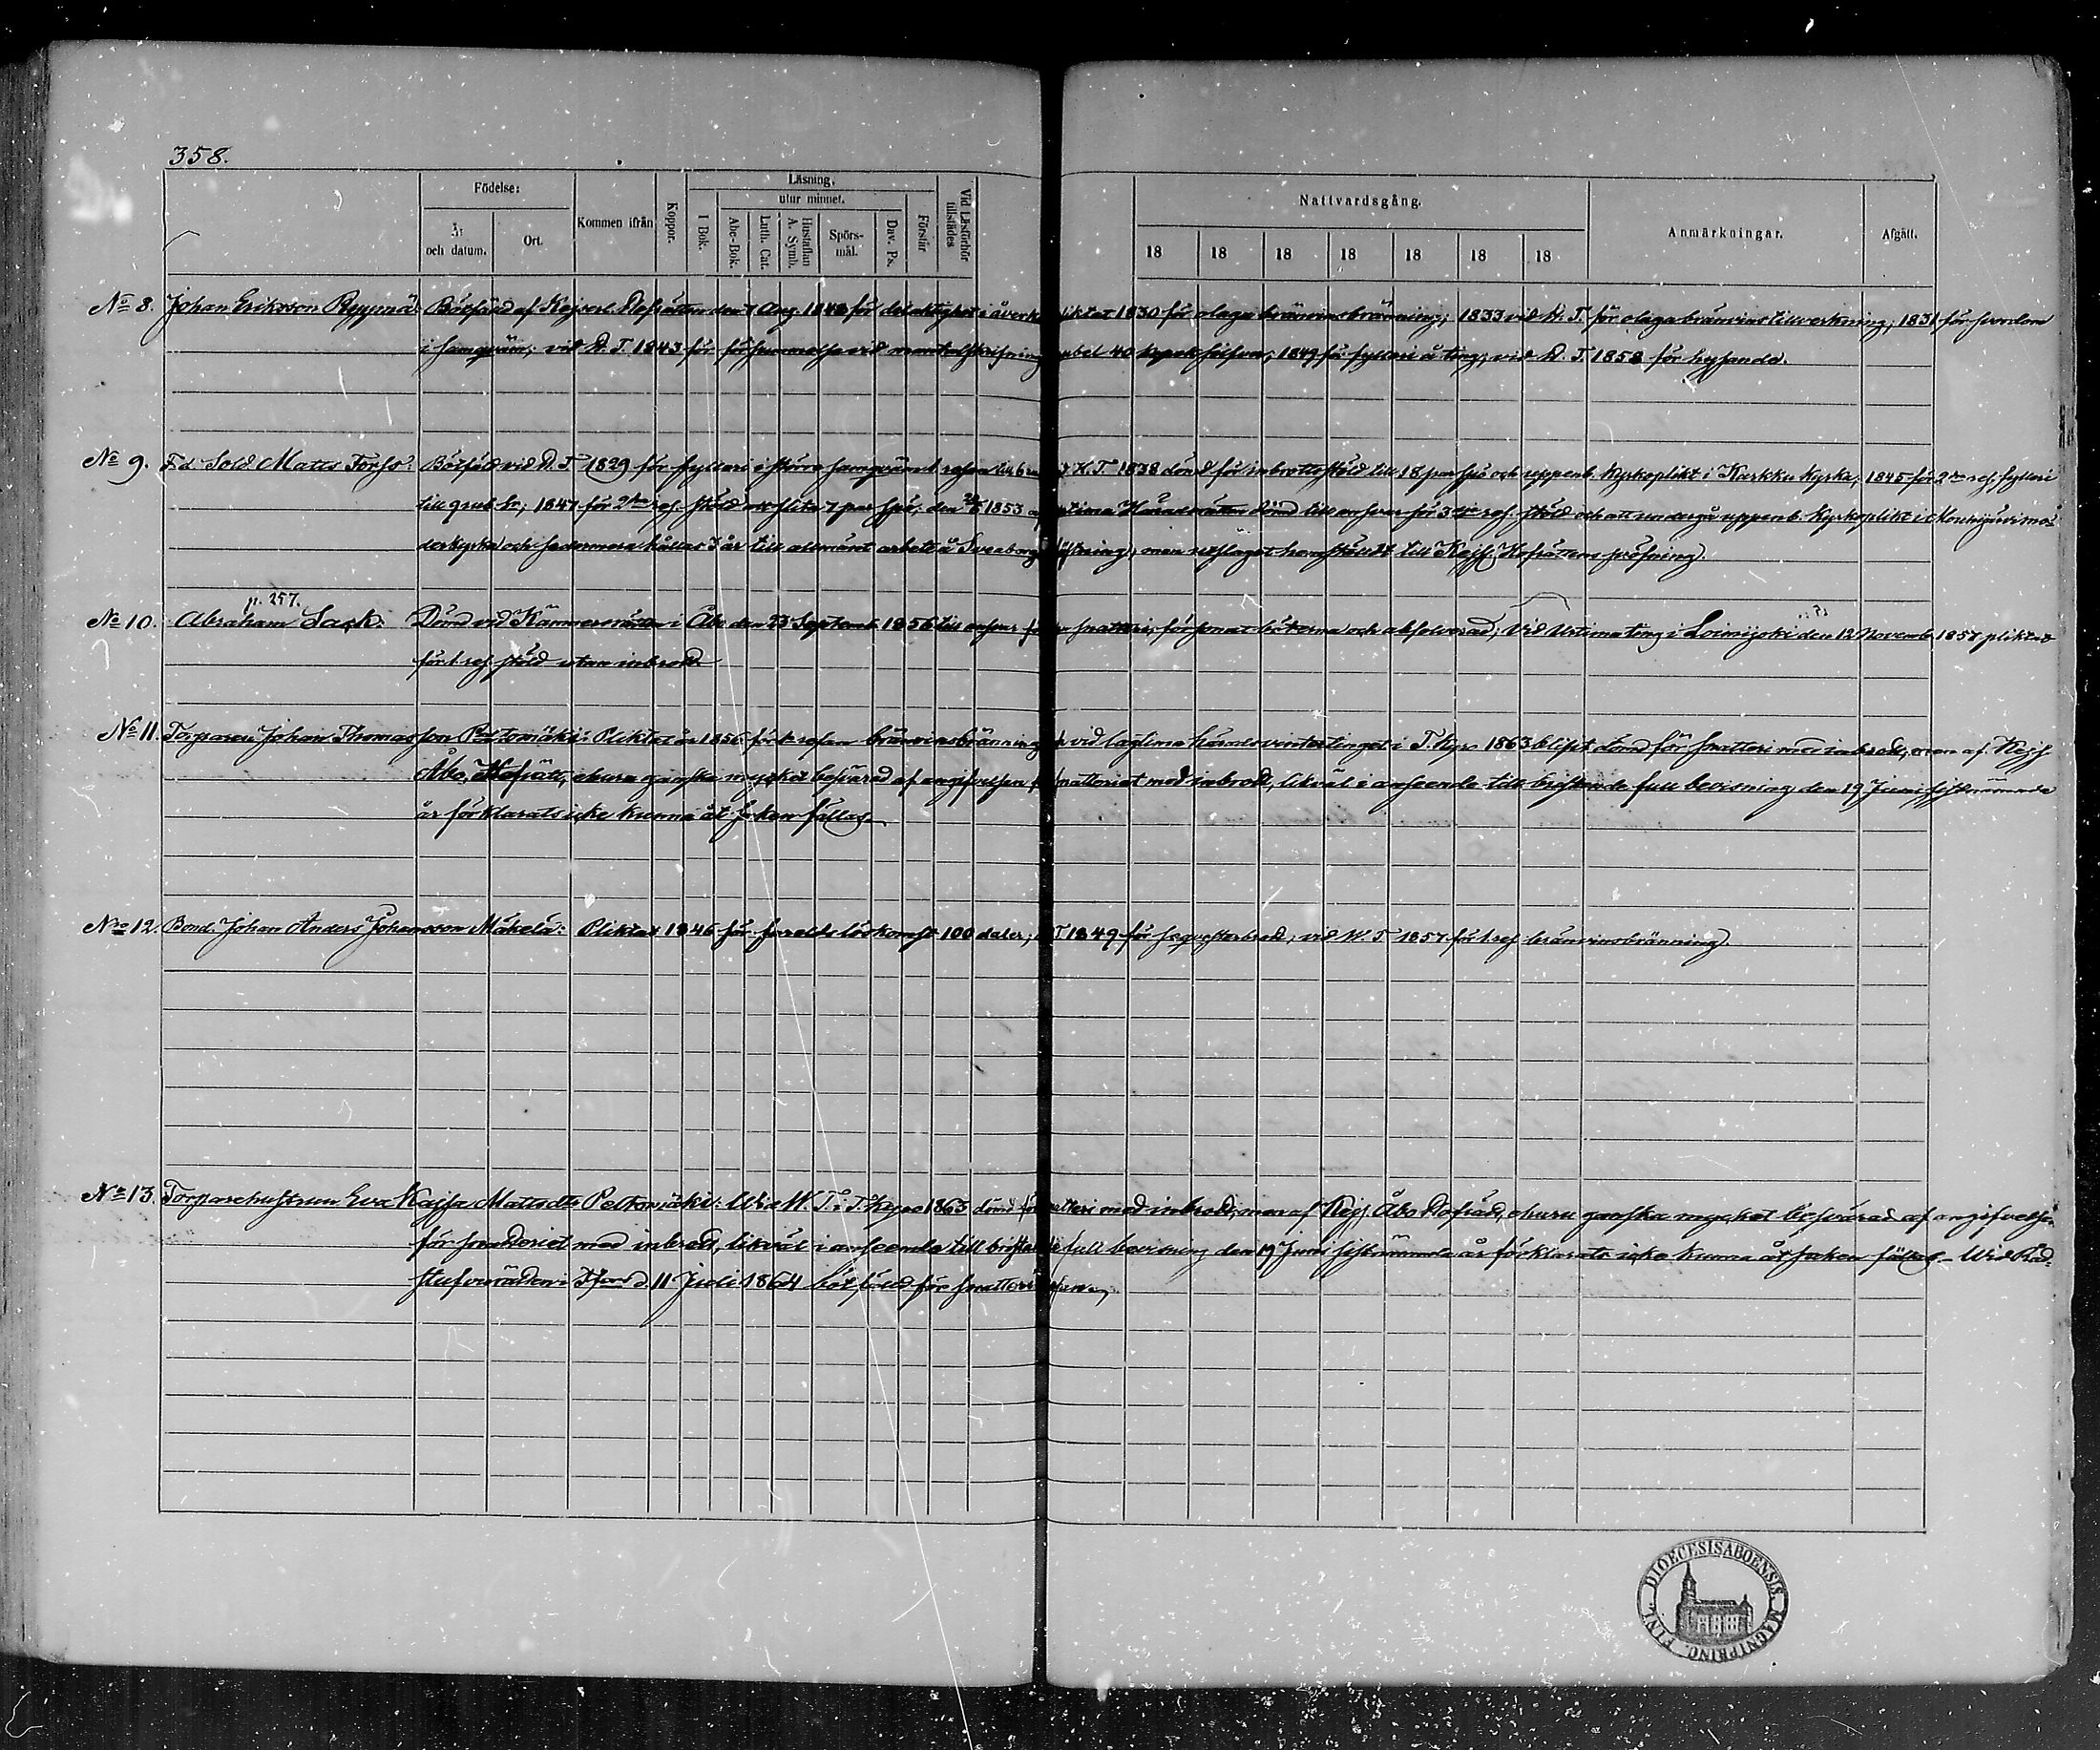 358.
Födelse:
År och datum.
Ort.
Kommen ifrån
Koppor.
Läsning.
utur minnet.
I Bok.
Abc-Bok.
Luth. Cat.
Hustaflan A. Symb.
Spörs-mål.
Dav. Ps.
Förstår
Vid Läsförhör tillstädes
Nattvardsgång.
18 18 18 18 18 18 18
Anmärkningar.
Afgått.
No 8. Johan Eriksson Botfäld af Kejserl. Hofrätten den 7 Aug. 1848 för delaktighet i åverk pliktat 1830 för olaga bränvinsbränning; 1833 vid H. T. för olaga bränvinstillverkning; 1831 för svordom
i samqväm; vid H. T. 1843 för försummelse vid mantalskrifning rubel 40 kopek silfver; 1849 för fylleri å ting; vid H. T. 1858 för
No 9. F.d. Sold. Matts Fors: Botfäld vid H. T. 1829 för fylleri i större samqväm H. T. 1838 dömd för inbrottsstöld till 18 par spö och uppenb. kyrkoplikt i Karkku kyrka; 1845 för 2dra res. fylleri
till 9 rub. 1847 för 2dra res. stöld att slita 7 par spö; den 1853 af Urtima Häradsrätten dömd till ansvar för 3dje res. stöld och att undergå uppenb. kyrkoplikt i Mouhijärvi mo-
derkyrka och sedermera hållas 3 år till allmänt arbete å Sveaborgs fästning, men utslaget hemstäldt till Kejs. Hofrättens pröfning.
p. 257.
No 10. Abraham Sack: Dömd vid Kämnersrätten i Åbo den 23 Septemb. 1856 till ansvar för snatteri, försonat böterna och absolverad; Vid Urtima ting i Loimijoki den 12 Novemb. 1857 pliktat
för 1. res. stöld utan inbrott.
No 11. Torparen Johan Thomasson Peltomäki: Pliktat år 1856 för 1. resan bränvinsbränning vid lagtima häradsvintertinget i T. Kyro 1863 blifvit dömd för snatteri med inbrott, men af Kejs.
Åbo Hofrätt, ehuru ganska mycket besvärad af angifvelsen för snatteriet med inbrott, likväl i anseende till bristande full bevisning den 19 Juni sistnämnde
år förklarats icke kunna åt saken fällas.
No 12. Bond. Johan Anders Johansson Mäkelä: Pliktat 1846 för 100 daler; T 1849 för sequesterbrott; vid W. T. 1857 för 1. res bränvinsbränning.
No 13. Torparehustrun Eva Kajsa Mattsdtr Peltomäki: Vid W. T. i T. Kyro 1863 dömd för snatteri med inbrott, men af Kejs. Åbo Hofrätt, ehuru ganska mycket besvärad af angifvelsen
för snatteriet med inbrott, likväl i anseende till bristande full bevisning den 19 Juni sistnämnde år förklarats icke kunna åt saken fällas. Wid Råd-
stufvurätten i d. 11 Juli 1864 botfäld för snatteri
DIOECESIS ABOENSIS. MAGNI PRINC. FINL.